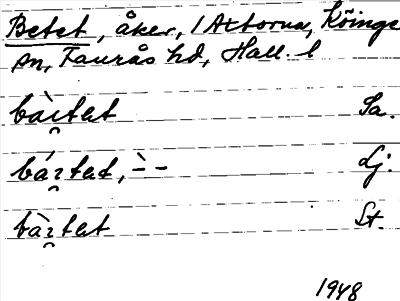 Betet, åker, 1 Axtorna, Köinge
sn, Faurås hd, Hall. l
bàɩ̯tet Sa.
bátet, `- - Lj.
bàtet St.
1948